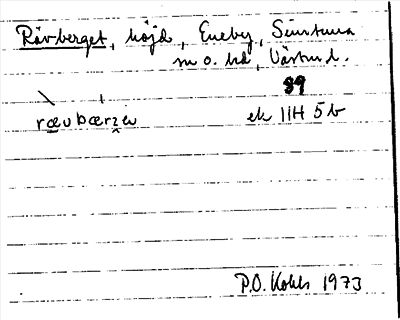 Räv-berget, höjd, Eneby, Simtuna
sn o. hd, Västml.
89
rævbærʒ̭ėn
ek 11H 5b
P.O. Kohls 1973